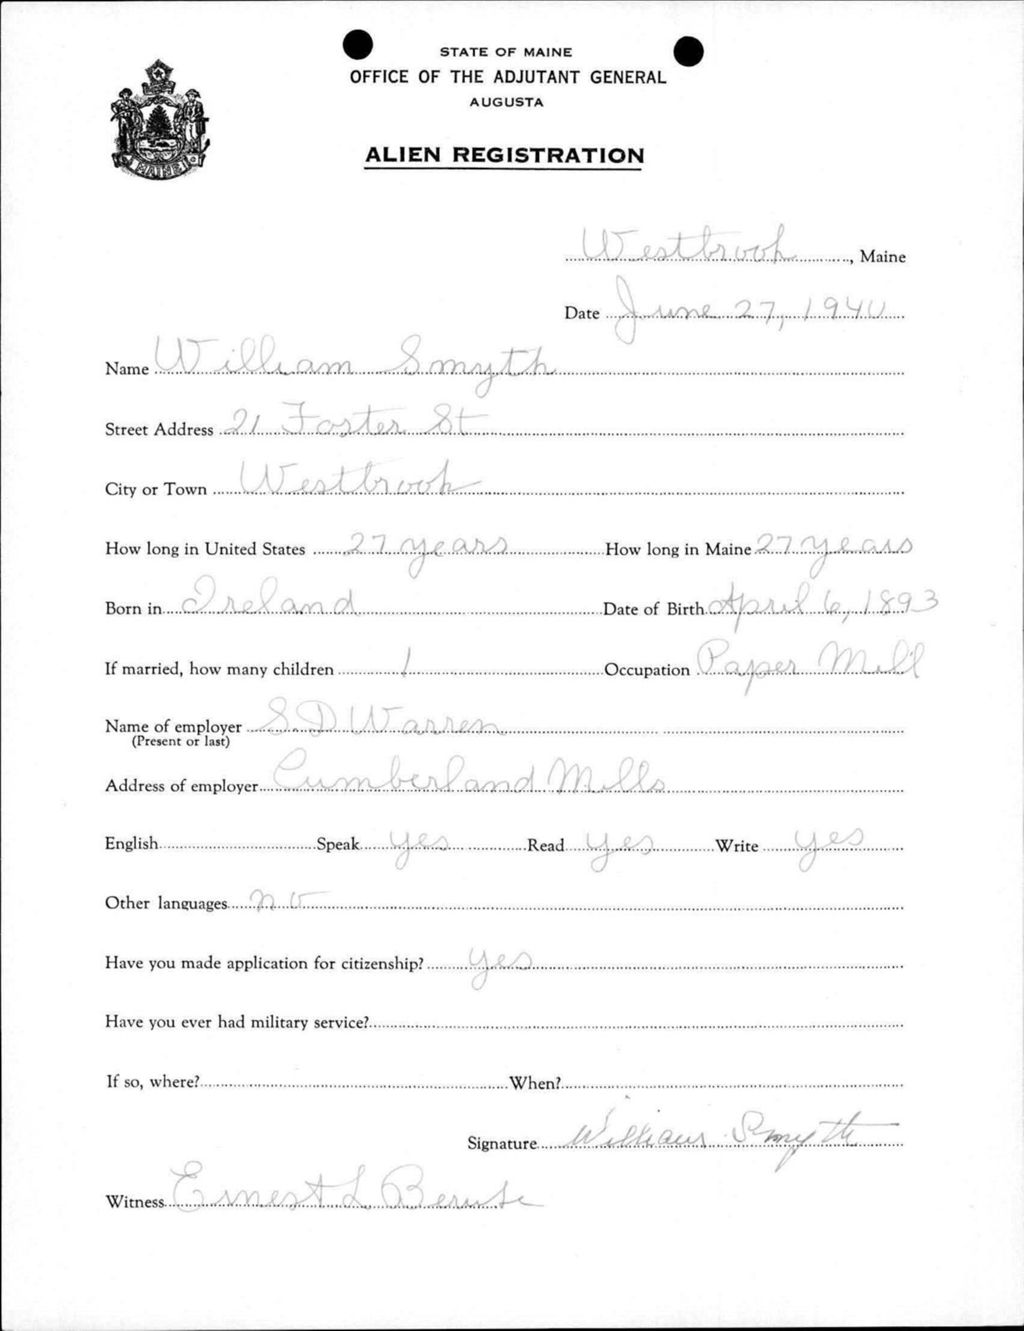 STATE OF MAINE
OFFICE OF THE ADJUTANT GENERAL
AUGUSTA
ALIEN REGISTRATION
MAINE
Westbrook, Maine
Date June 27, 1940
Name William Smyth
Street Address 21 Foster St
City or Town Westbrook
How long in United States 27 years How long in Maine 27 years
Born in Ireland Date of Birth April 6, 1893
If married, how many children 1 Occupation Paper Mill
Name of employer S D Warren
(Present or last)
Address of employer Cumberland Mills
English Speak yes Read yes Write yes
Other languages no
Have you made application for citizenship? yes
Have you ever had military service?
If so, where? When?
Signature William Smyth
Witness Ernest L